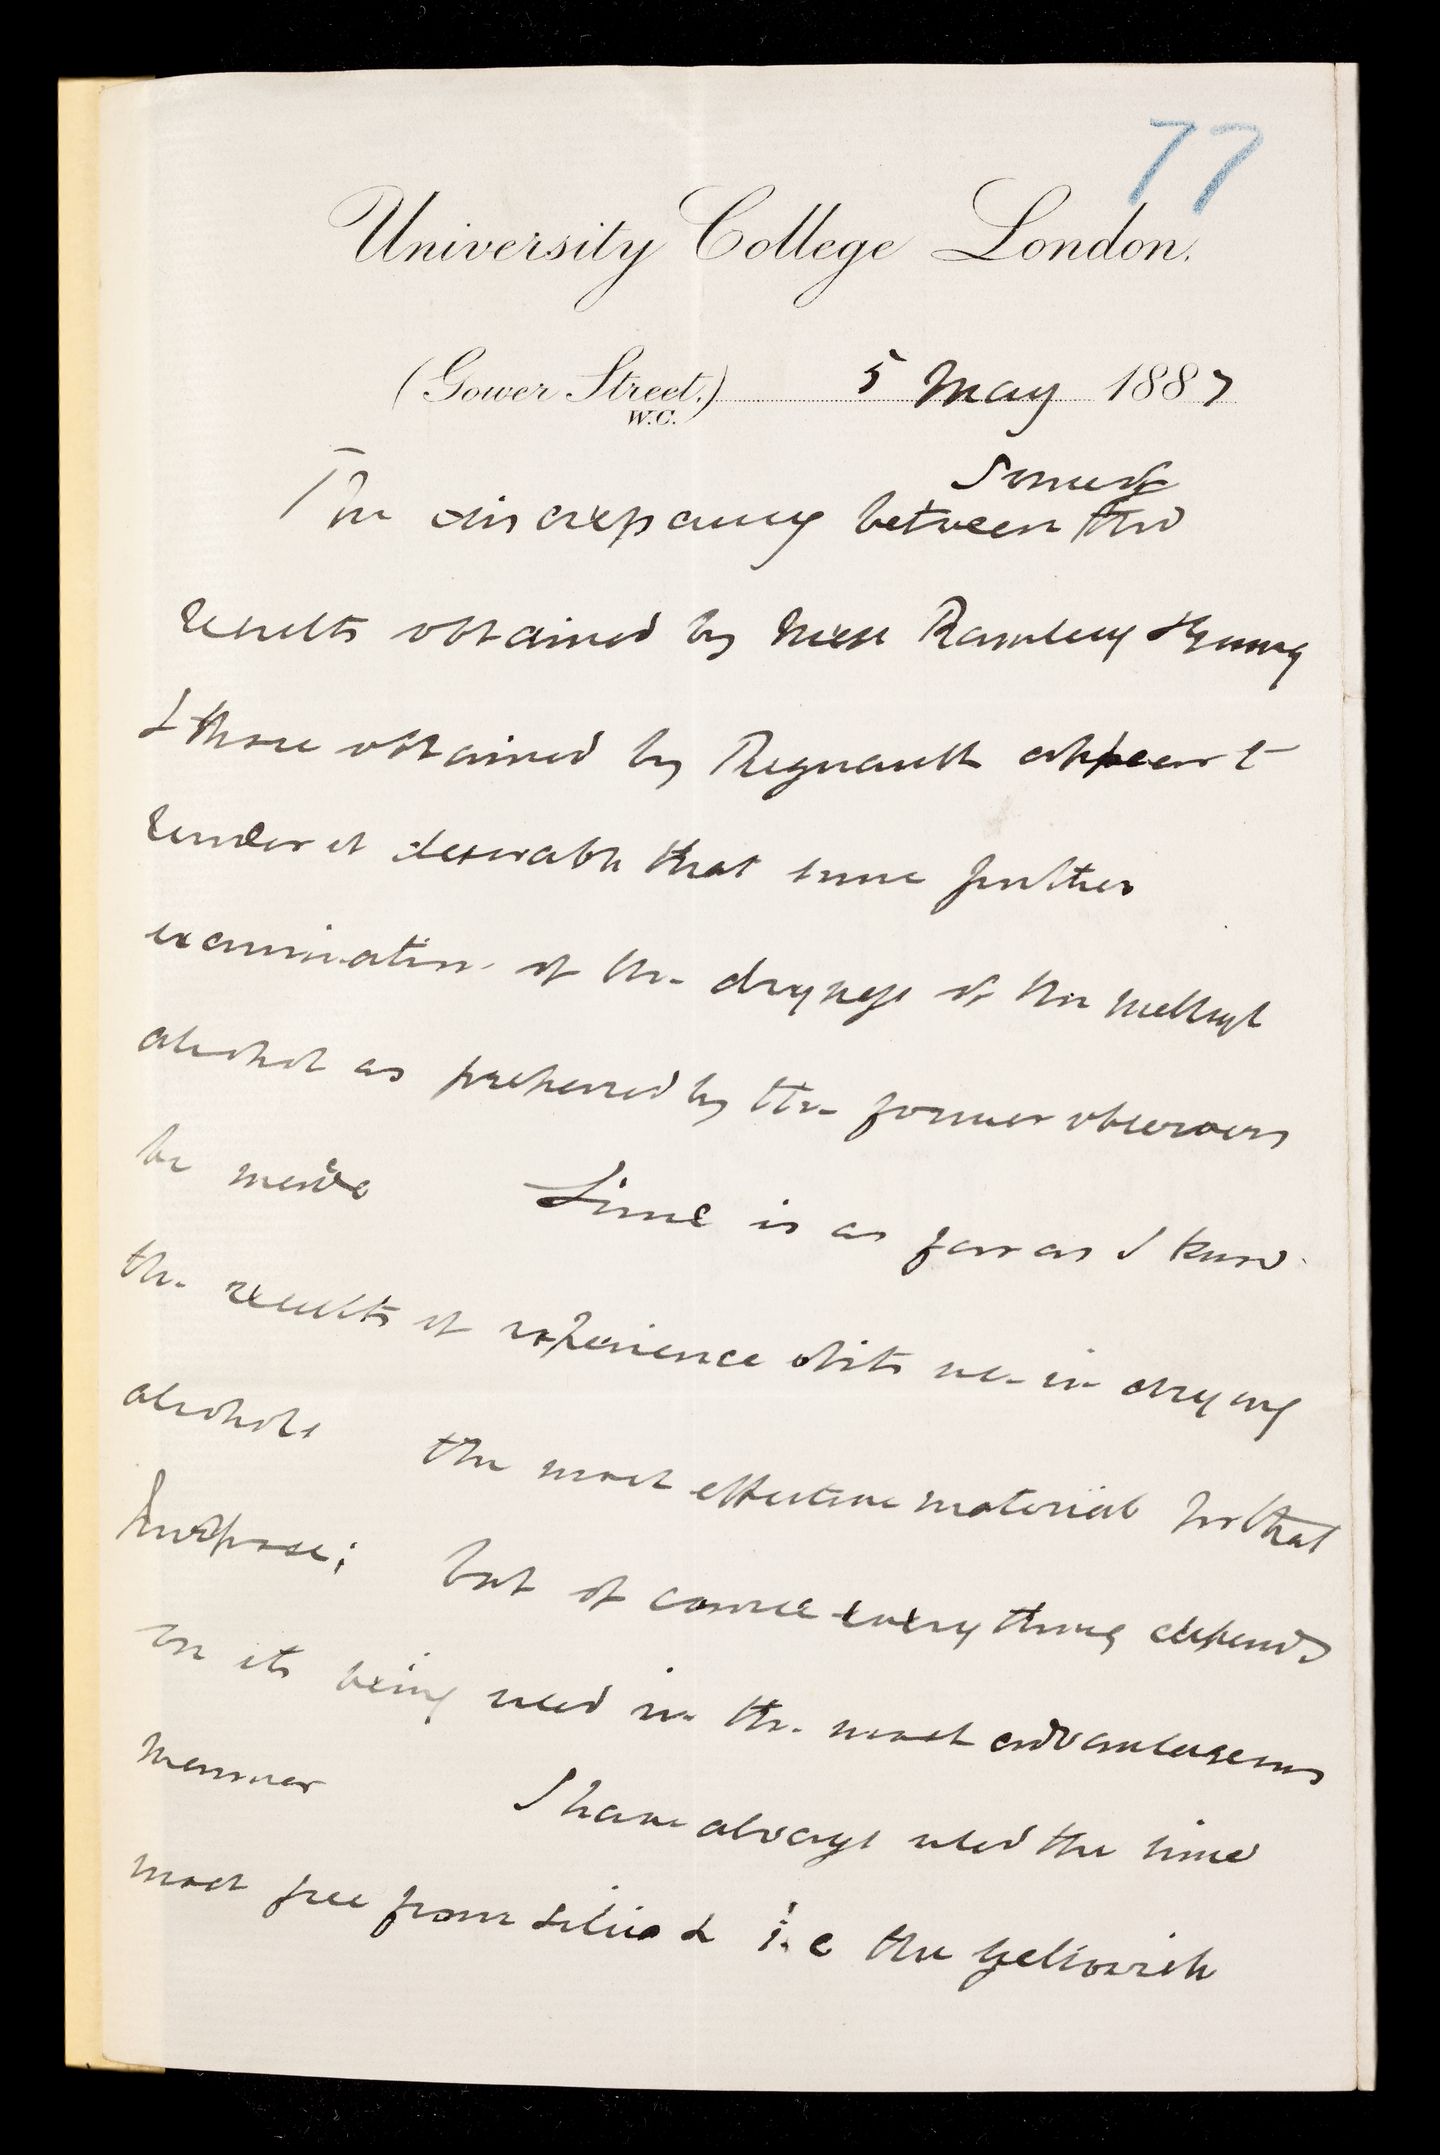 77
University College London.
(Gower Street.) 5 May 1887
W.C.
some of
The discrepancy between the
results obtained by Messrs Ramsay & Young
& those obtained by Regnault appear to
render it desirable that some further
examination of the dryness of the methyl
alcohol as prepared by the former observers
be made Lime is as far as I know
the results of experience of its use in drying
alcohols the most effective material for that
purpose; but of course everything depends
on its being used in the most advantageous
manner I have always used the lime
most free from silica & i.e the yellowish